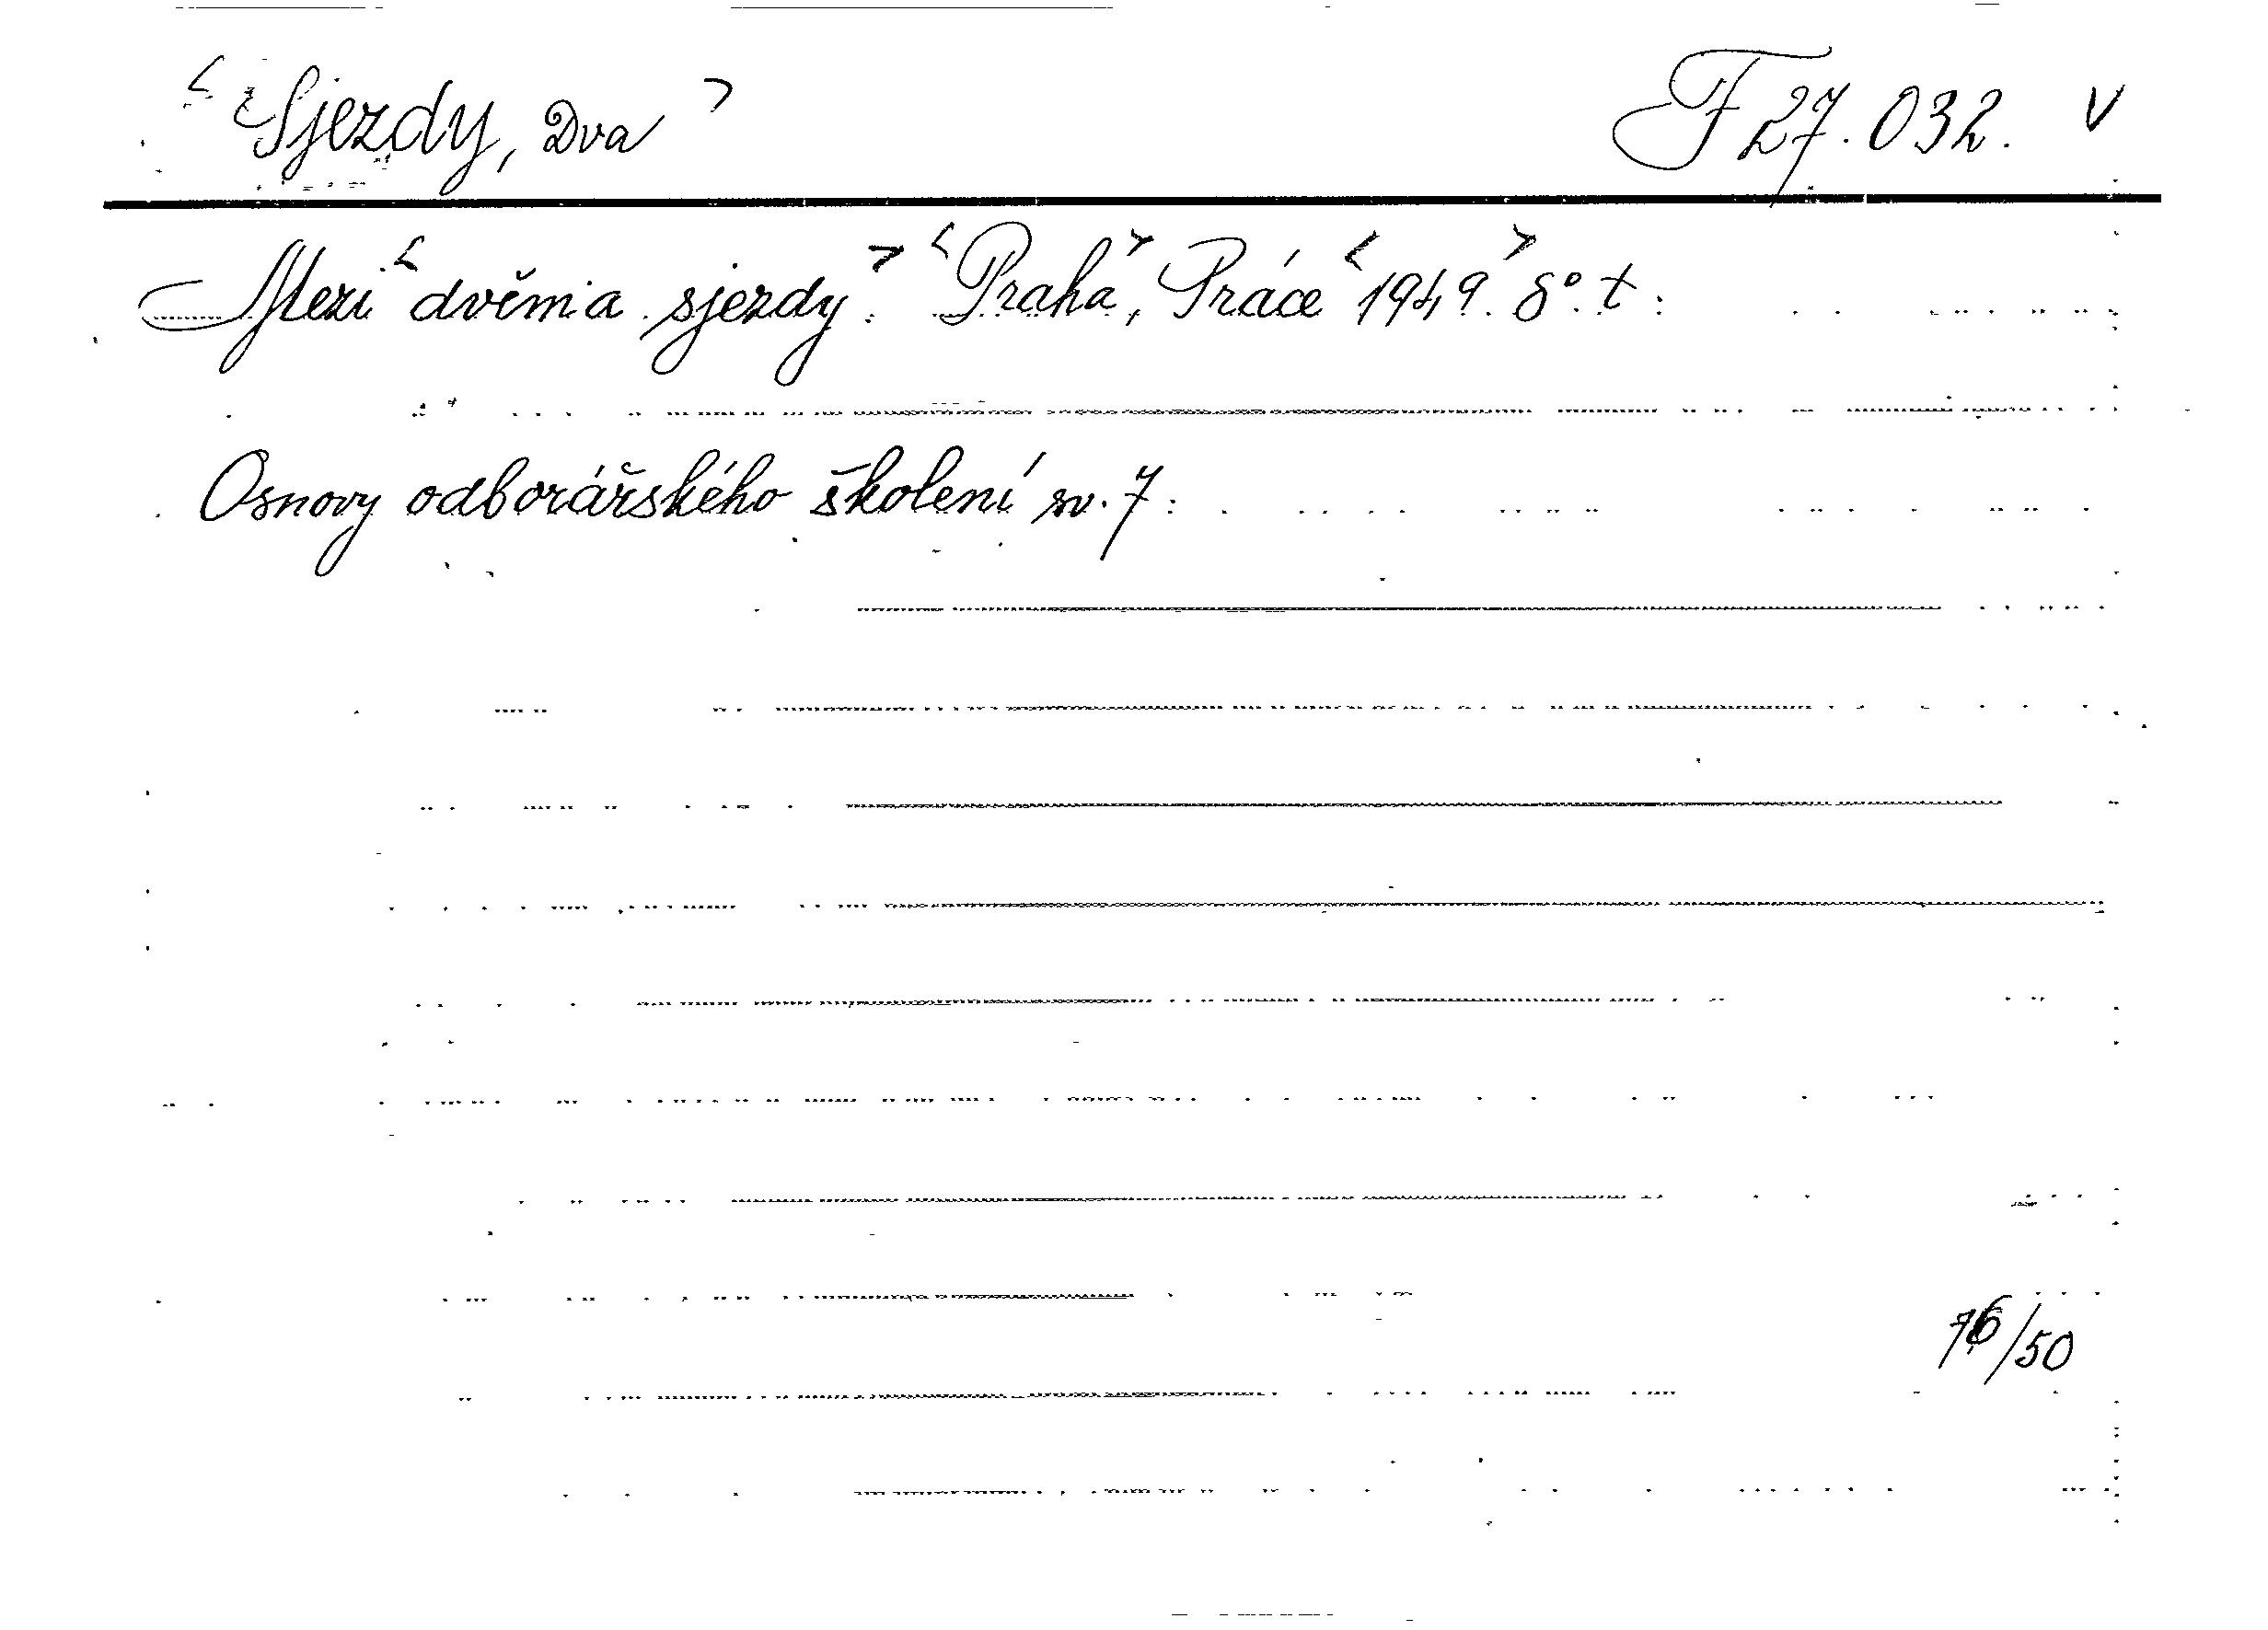 <Sjezdy, Dva> F 27.032. V
Mezi <dvěma sjezdy.> <Praha>, Práce <1949.> 8°. t.
Osnovy odborářského školení sv. 7.
76/50